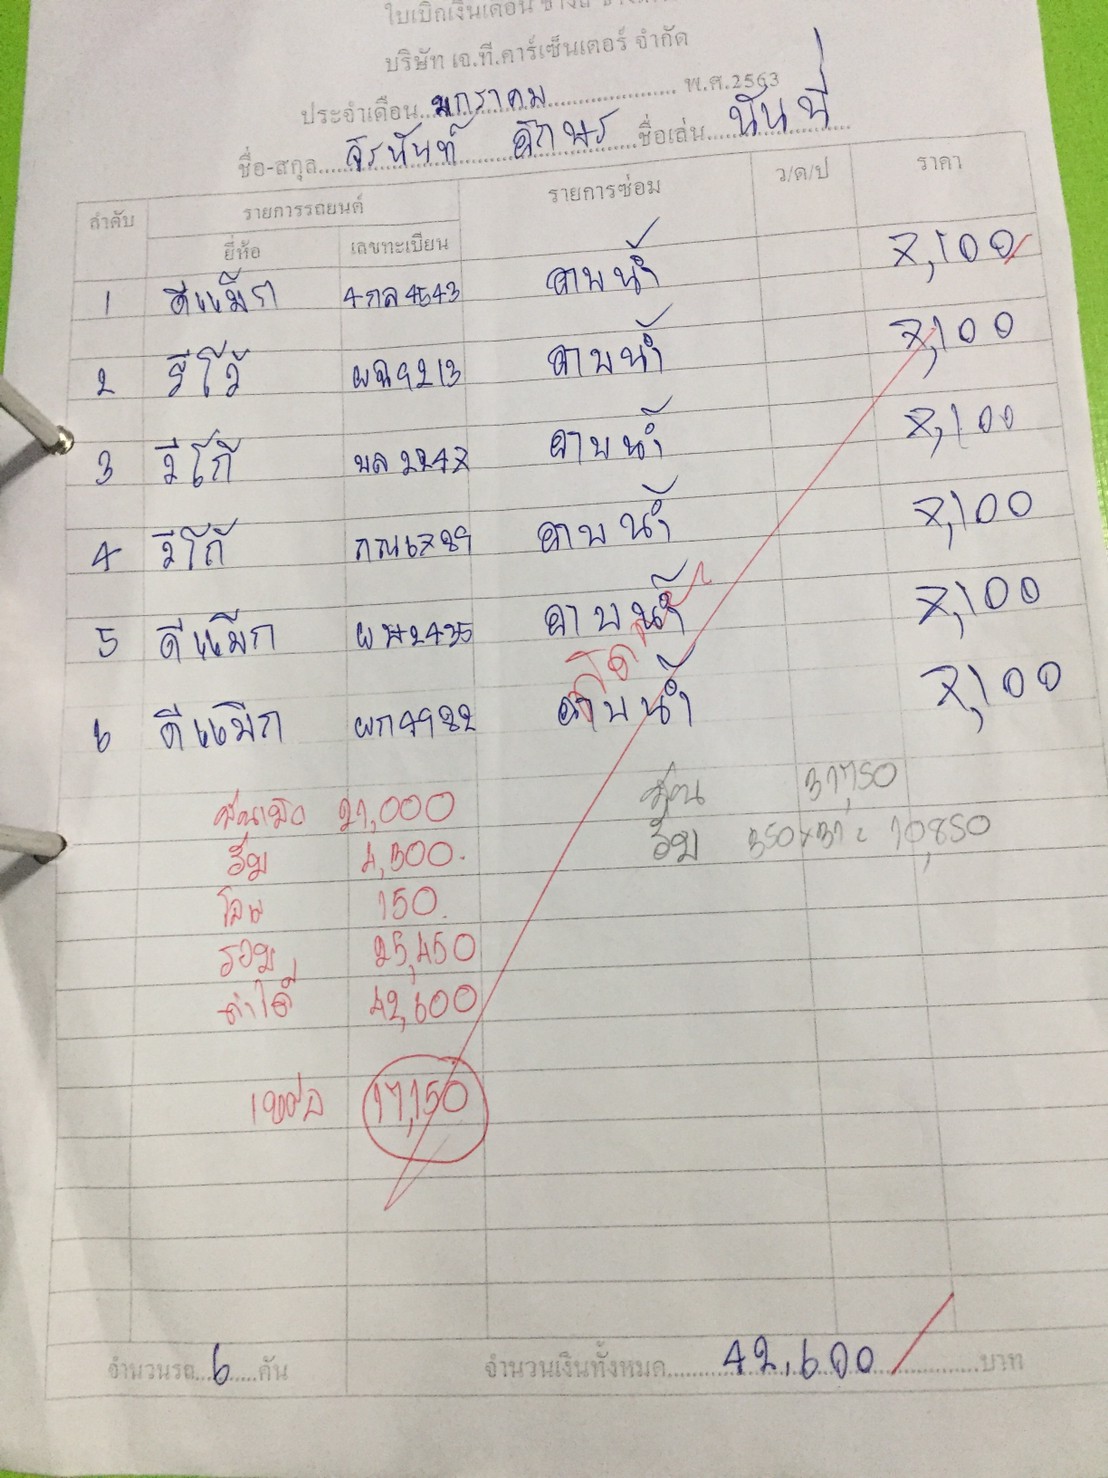 ใบเบิกเงินเดือน ช่าง
บริษัท เจ.ที.คาร์เซ็นเตอร์ จำกัด
ประจำเดือน มกราคม พ.ศ.2563
ชื่อ-สกุล จิรนันท์ อักษร ชื่อเล่น นันนี่
ลำดับ รายการรถยนต์ รายการซ่อม ว/ด/ป ราคา
ยี่ห้อ เลขทะเบียน
1 ดีแม็ก 4กล4543 อาบน้ำ 7,100
2 รีโว้ ผฉ9213 อาบน้ำ 7,100
3 วีโก้ บล2247 อาบน้ำ 7,100
4 วีโก้ กณ6789 อาบน้ำ 7,100
5 ดีแม็ก 2435 อาบน้ำ 7,100
6 ดีแม็ก ผก4982 อาบน้ำ 7,100
คิด
31,750
350x31= 10,850
21,000
ยืม 4,300.
150.
รวม 25,450
ทำได้ 42,600
เหลือ 17,150
จำนวนรถ 6 คัน จำนวนเงินทั้งหมด 42,600 บาท